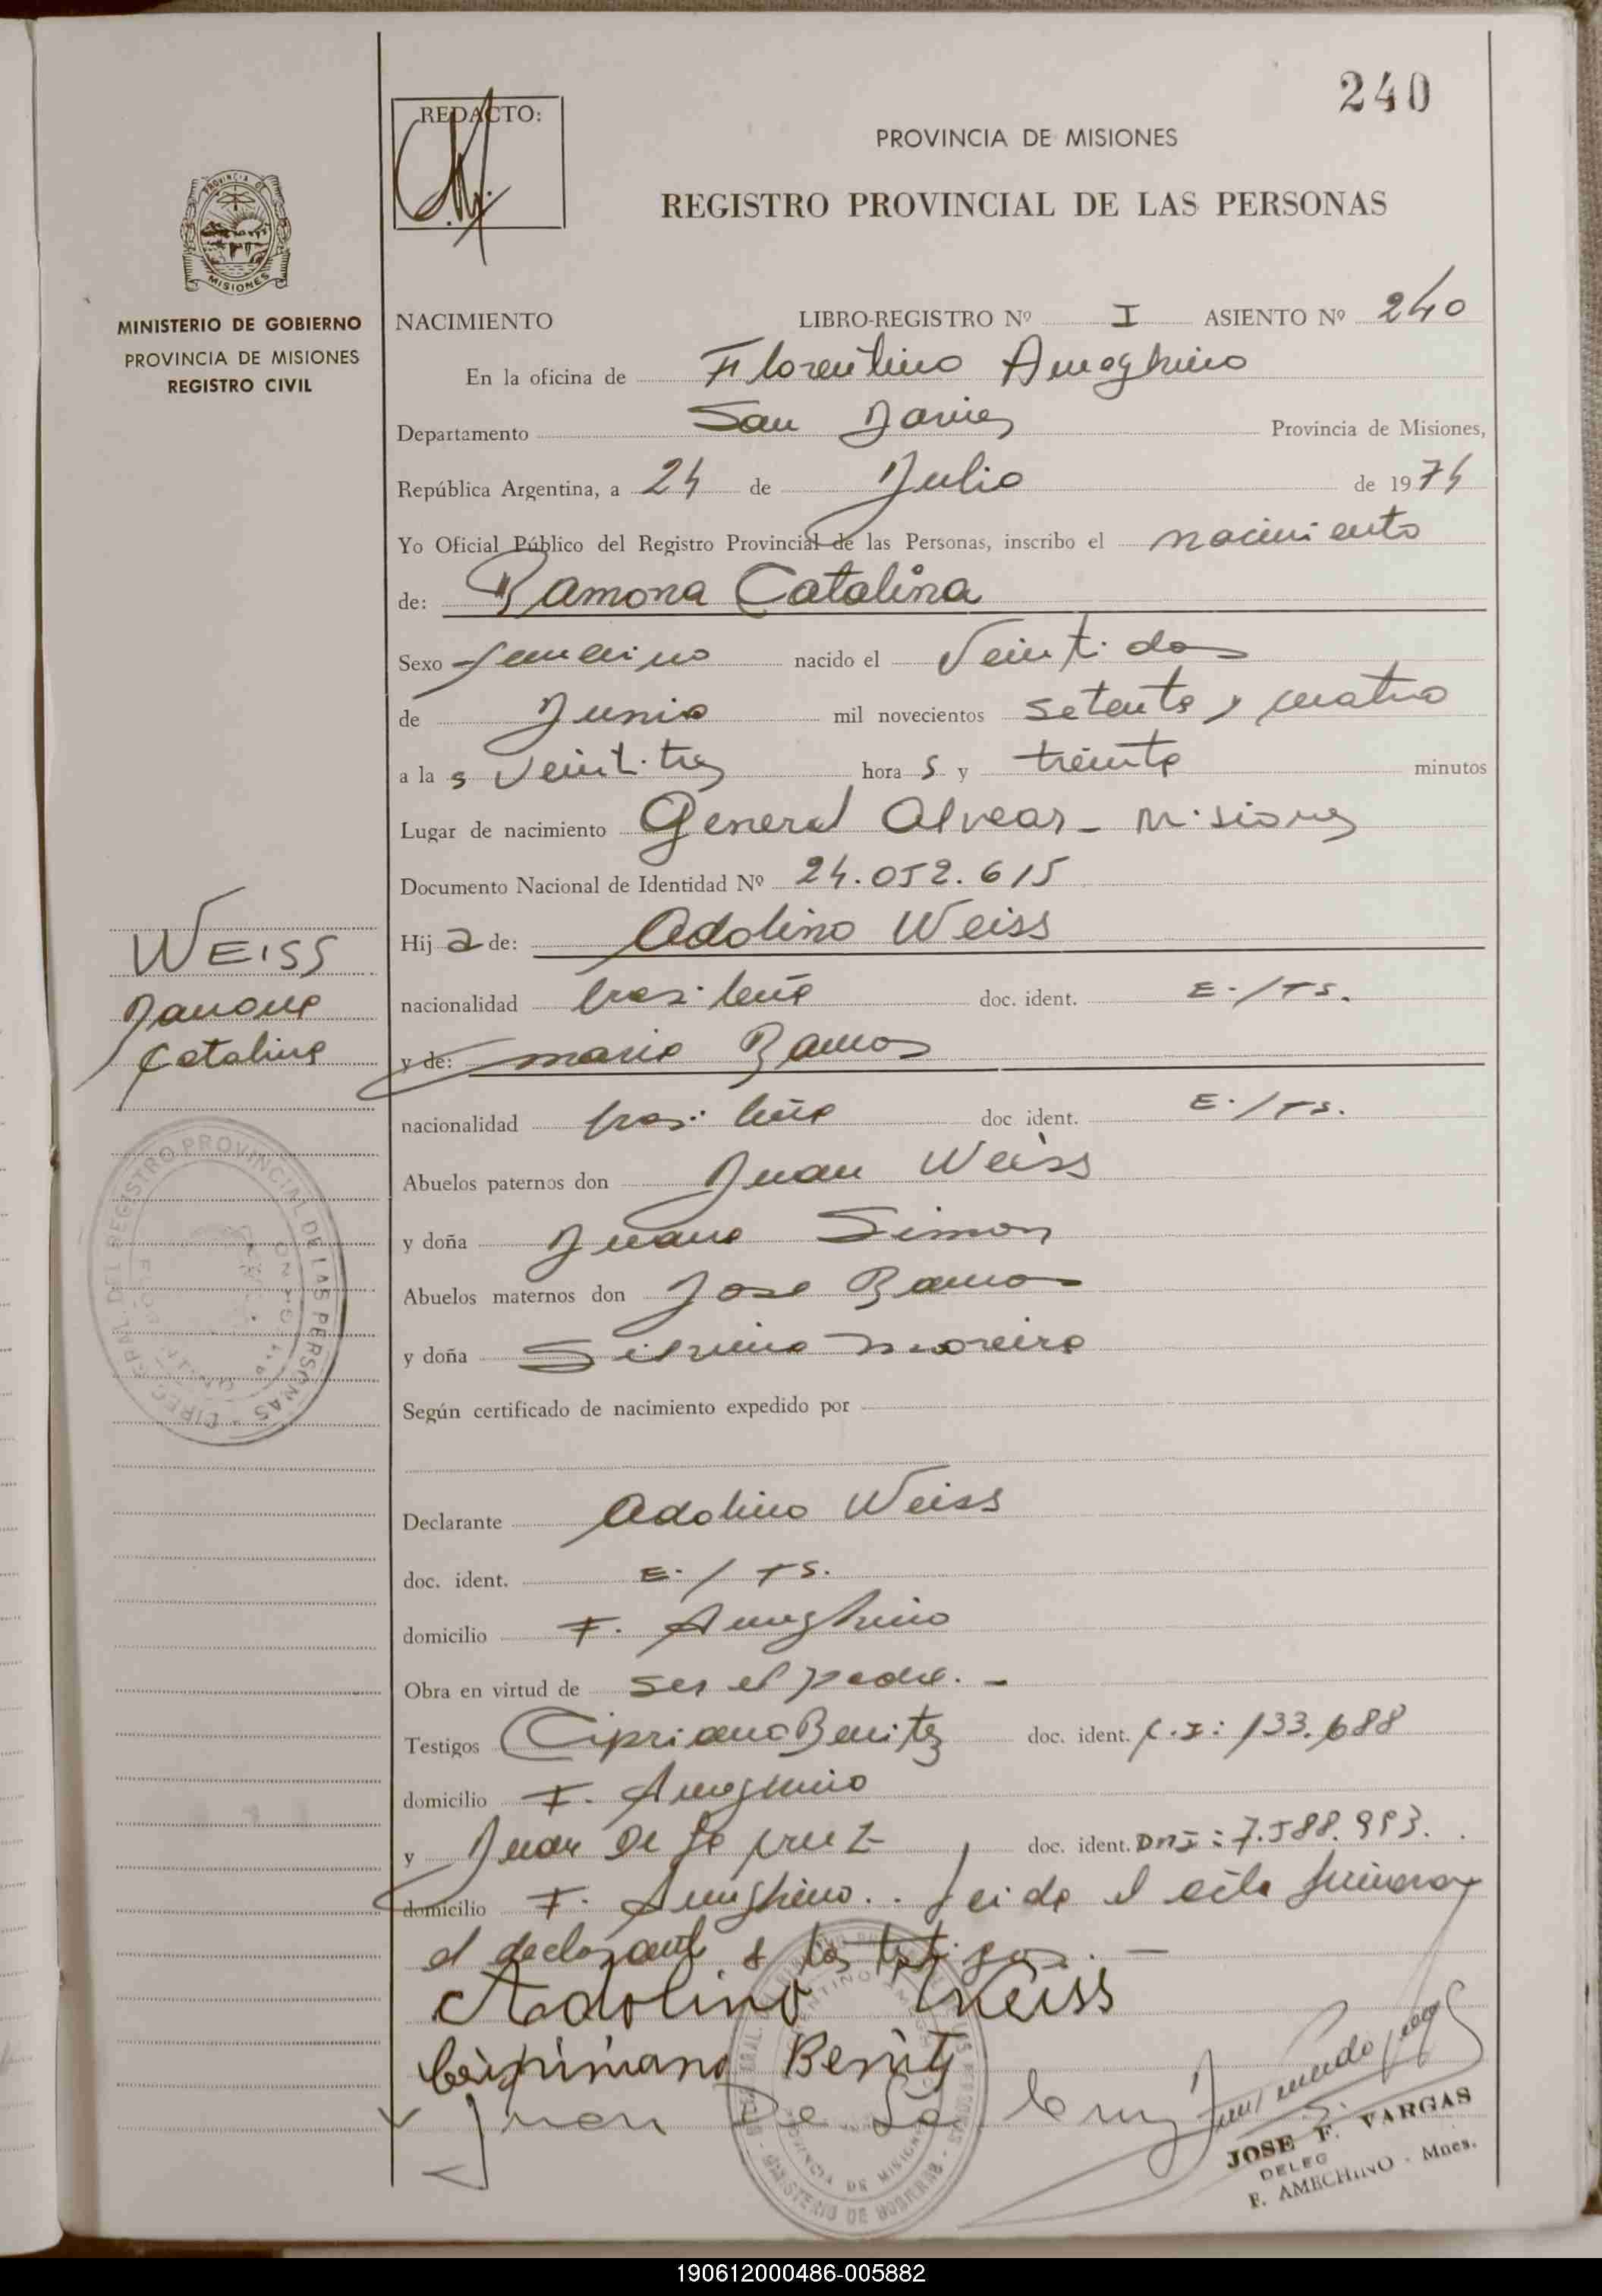 240
REDACTO:
PROVINCIA DE MISIONES
REGISTRO PROVINCIAL DE LAS PERSONAS
PROVINCIA DE
MISIONES
MINISTERIO DE GOBIERNO
PROVINCIA DE MISIONES
REGISTRO CIVIL
NACIMIENTO LIBRO-REGISTRO Nº I ASIENTO Nº 240
En la oficina de Florentino Ameghino
Departamento San Javier Provincia de Misiones,
República Argentina, a 24 de Julio de 1974
Yo Oficial Público del Registro Provincial de las Personas, inscribo el nacimiento
de: Ramona Catalina
Sexo femenino nacido el Veintidos
de Junio mil novecientos setenta y cuatro
a la s veintitres hora s y treinta minutos
Lugar de nacimiento General Alvear - Misiones
Documento Nacional de Identidad Nº 24.052.615
Hij a de: Adolino Weiss
nacionalidad brasileña doc. ident. E./TS.
y de: Maria Ramos
nacionalidad brasileña doc ident. E./TS.
WEISS
Ramona
Catalina
Abuelos paternos don Juan Weiss
y doña Juana Simon
Abuelos maternos don Jose Ramos
y doña Silvina Moreira
Según certificado de nacimiento expedido por
DIREC. GRAL. DEL REGISTRO PROVINCIAL DE LAS PERSONAS
Declarante Adolino Weiss
doc. ident. E./TS.
domicilio F. Ameghino
Obra en virtud de ser el padre. -
Testigos Cipriano Benitez doc. ident. C.I: 133.688
domicilio F. Ameghino
y Juan De la Cruz doc. ident. DNI: 7.588.993.
domicilio F. Ameghino.. Leida el acta firmaron
el declarante y los testigos. -
Adolino Weiss
Benitez
Juan De La Cruz
JOSE F. VARGAS
DELEG
F. AMEGHINO - Mnes.
190612000486-005882